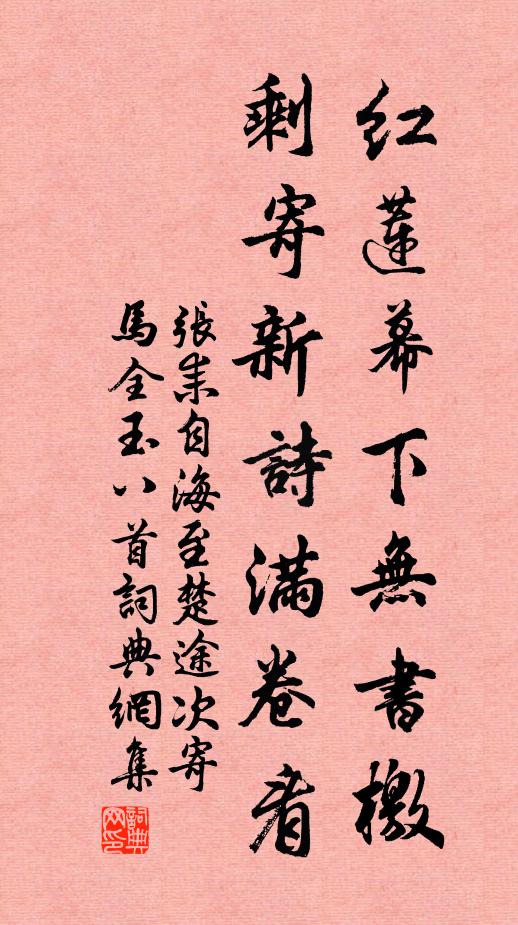 紅蓮幕下無書檄
剩寄新詩滿卷看
張耒自海至楚途次寄
馬全玉八首詞典網集
詞典网印